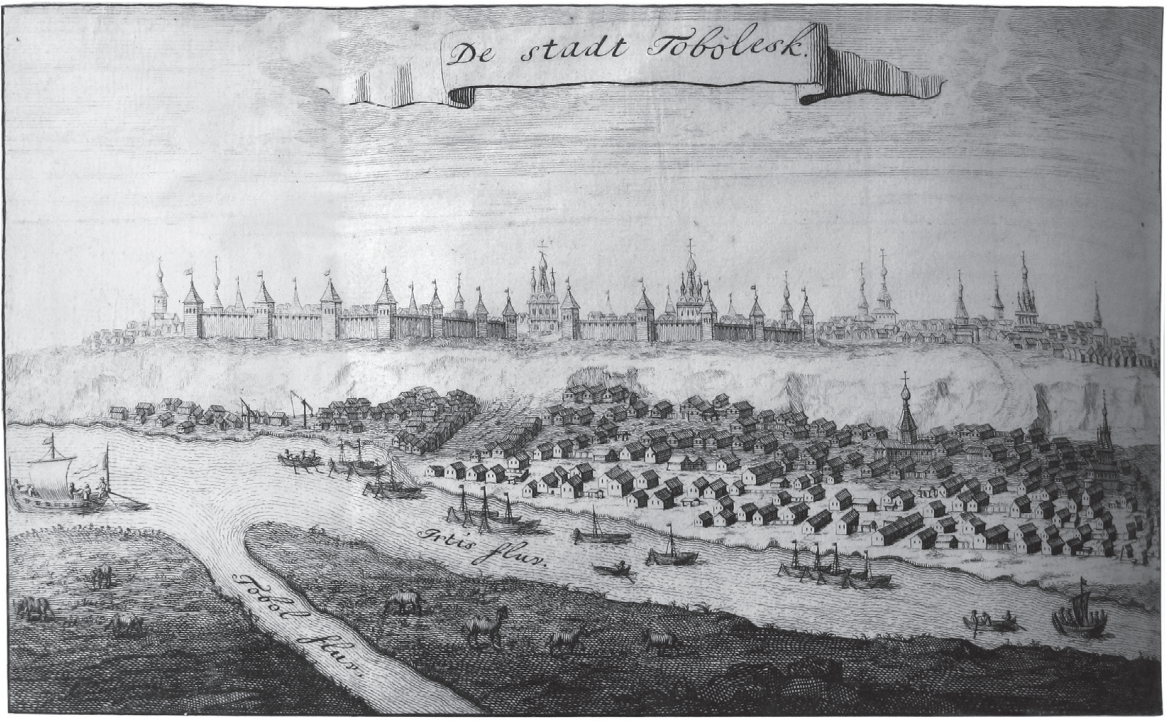 De stadt Tobolesk.
Irtis fluv.
Tobol fluv.